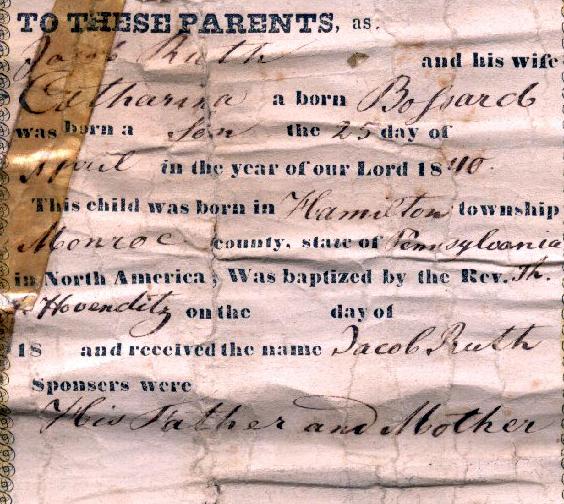 TO THESE PARENTS, as.
Jacob Ruth and his wife
Catharina a born Bossard
was born a Son the 25 day of
April in the year of our Lord 1840.
This child was born in Hamilton township
Monroe county, state of Pennsylvania
in North America; Was baptized by the Rev. Th.
Hoenditz on the day of
18 and received the name Jacob Ruth
Sponsers were
His Father and Mother